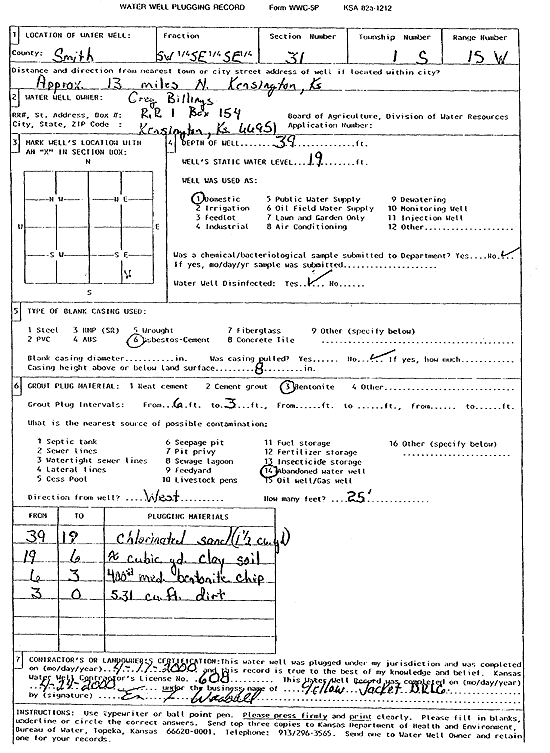 WATER WELL PLUGGING RECORD Form WWC-5P KSA 82a-1212
1 LOCATION OF WATER WELL: Fraction Section Number Township Number Range Number
County: Smith SW 1/4 SE 1/4 SE 1/4 31 1 S 15 W
Distance and direction from nearest town or city street address of well if located within city?
Approx. 13 miles N. Kensington, Ks
2 WATER WELL OWNER: Greg Billings
RR#, St. Address, Box #: R.R 1 Box 154 Board of Agriculture, Division of Water Resources
City, State, ZIP Code : Kensington, Ks 66951 Application Number:
3 MARK WELL'S LOCATION WITH AN "X" IN SECTION BOX:
N
N W N E
W E
S W S E
S
4 DEPTH OF WELL 39 ft.
WELL'S STATIC WATER LEVEL 19 ft.
WELL WAS USED AS:
1 Domestic 5 Public Water Supply 9 Dewatering
2 Irrigation 6 Oil Field Water Supply 10 Monitoring Well
3 Feedlot 7 Lawn and Garden Only 11 Injection Well
4 Industrial 8 Air Conditioning 12 Other
Was a chemical/bacteriological sample submitted to Department? Yes....No ✓
If yes, mo/day/yr sample was submitted
Water Well Disinfected: Yes ✓ No......
5 TYPE OF BLANK CASING USED:
1 Steel 3 RMP (SR) 5 Wrought 7 Fiberglass 9 Other (specify below)
2 PVC 4 ABS 6 Asbestos-Cement 8 Concrete Tile
Blank casing diameter...........in. Was casing pulled? Yes...... No ✓ If yes, how much
Casing height above or below land surface 8 in.
6 GROUT PLUG MATERIAL: 1 Neat cement 2 Cement grout 3 Bentonite 4 Other
Grout Plug Intervals: From 6 ft. to 3 ft., From......ft. to ......ft., from......to......ft.
What is the nearest source of possible contamination:
1 Septic tank 6 Seepage pit 11 Fuel storage 16 Other (specify below)
2 Sewer lines 7 Pit privy 12 Fertilizer storage
3 Watertight sewer lines 8 Sewage lagoon 13 Insecticide storage
4 Lateral lines 9 Feedyard 14 Abandoned water well
5 Cess Pool 10 Livestock pens 15 Oil well/Gas well
Direction from well? West How many feet? 25'
FROM TO PLUGGING MATERIALS
39 19 Chlorinated sand (1½ cu yd)
19 6 cubic yd. clay soil
6 3 400# med bentonite chip
3 0 5.31 cu. ft. dirt
7 CONTRACTOR'S OR LANDOWNER'S CERTIFICATION: This water well was plugged under my jurisdiction and was completed
on (mo/day/year) 4-17-2000 and this record is true to the best of my knowledge and belief. Kansas
Water Well Contractor's License No. 608 This Water Well Record was completed on (mo/day/year)
4-24-2000 under the business name of Yellow Jacket DRLG.
by (signature)
INSTRUCTIONS: Use typewriter or ball point pen. Please press firmly and print clearly. Please fill in blanks,
underline or circle the correct answers. Send top three copies to Kansas Department of Health and Environment,
Bureau of Water, Topeka, Kansas 66620-0001. Telephone: 913/296-3565. Send one to Water Well Owner and retain
one for your records.